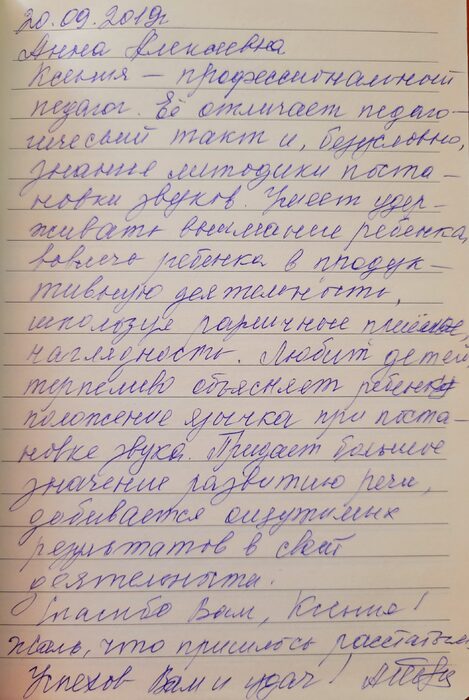 20.09.2019г
Анна Алексеевна
Ксения – профессиональный
педагог. Её отличает педаго-
гический такт и, безусловно,
знание методики поста-
новки звуков. Умеет удер-
живать внимание ребенка,
вовлечь ребенка в продук-
тивную деятельность,
используя различные
наглядность. Любит детей,
терпеливо объясняет ребенку
положение язычка при поста-
новке звука. Придает большое
значение развитию речи,
добивается ощутимых
результатов в своей
деятельности.
Спасибо Вам, Ксения!
Жаль, что пришлось расстаться.
Успехов Вам и удач!